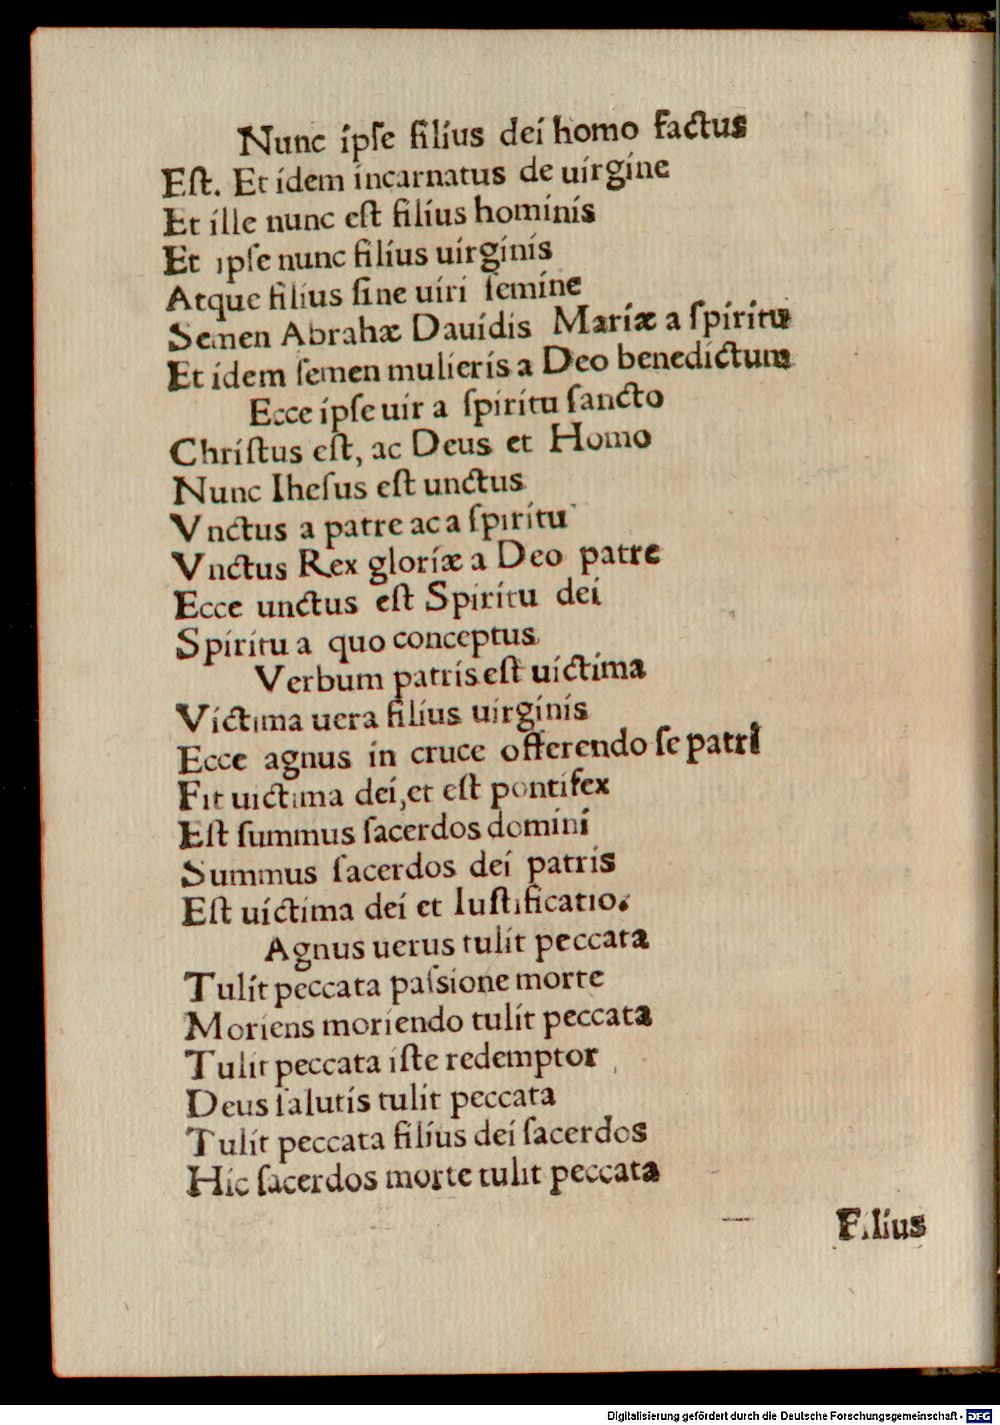 Nunc ipſe filius dei homo factus
Eſt. Et idem incarnatus de uirgine
Et ille nunc eſt filius hominis
Et ipſe nunc filius uirginis
Atque filius ſine uiri ſemine
Semen Abrahæ Dauidis Mariæ a ſpiritu
Et idem ſemen mulieris a Deo benedictum
Ecce ipſe uir a ſpiritu ſancto
Chriſtus eſt, ac Deus et Homo
Nunc Iheſus eſt unctus
Vnctus a patre ac a ſpiritu
Vnctus Rex gloriæ a Deo patre
Ecce unctus eſt Spiritu dei
Spiritu a quo conceptus
Verbum patris eſt uictima
Victima uera filius uirginis
Ecce agnus in cruce offerendo ſe patri
Fit uictima dei, et eſt pontifex
Eſt ſummus ſacerdos domini
Summus ſacerdos dei patris
Eſt uictima dei et Iuſtificatio.
Agnus uerus tulit peccata
Tulit peccata paſsione morte
Moriens moriendo tulit peccata
Tulit peccata iſte redemptor
Deus ſalutis tulit peccata
Tulit peccata filius dei ſacerdos
Hic ſacerdos morte tulit peccata
Filius
Digitalisierung gefördert durch die Deutsche Forschungsgemeinschaft - DFG